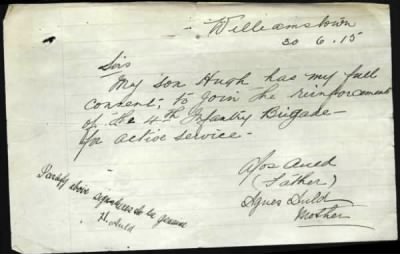 Williamstown
30 6.15
Sirs
My son Hugh has my full
consent, to join the reinforcement
of the 4th Infantry Brigade
for active service -
Auld
(Father)
Agnes Auld
Mother
I certify above signatures to be genuine
H. Auld